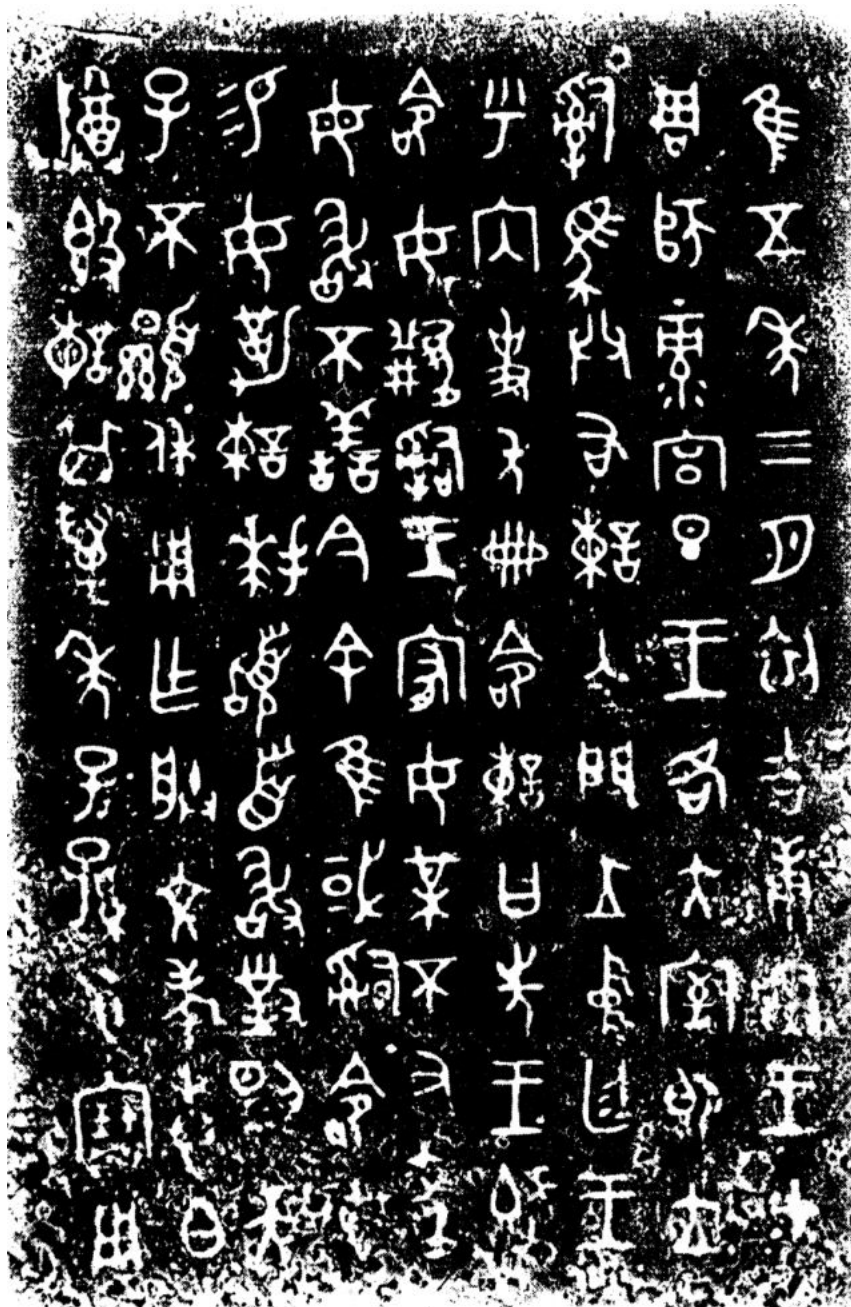 隹五年三月初吉庚寅王才
周師彔宮旦王各大室即立
𤔲馬共右諫入門立中廷王
乎內史先冊命諫曰先王既
命女𤔲王宥女某不又聞
母敢不善今余隹或𤔲命女
易女勒諫拜𩒨首敢對揚天
子不顯休用乍朕文考叀白
尊𣪘諫其萬年子子孫孫永寶用